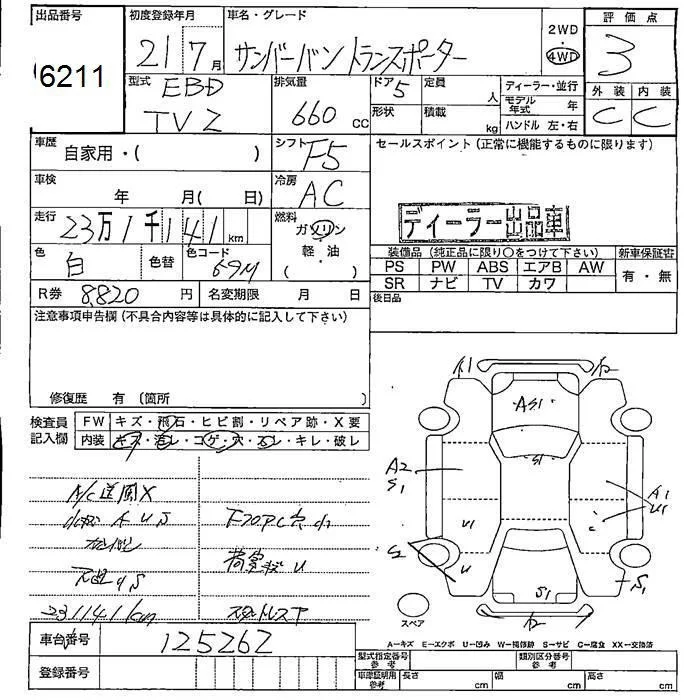 出品番号 初度登録年月 車名・グレード 評価点
6211 21 7月 サンバーバン トランスポーター 2WD・4WD 3
型式 EBD TV2 排気量 660 CC ドア 5 定員 人 ディーラー・並行 外装 内装
形状 積載 kg モデル年式 年 C C
ハンドル 左・右
車歴 自家用・( ) シフト F5 セールスポイント (正常に機能するものに限ります)
車検 年 月( 日) 冷房 AC
走行 23万1千141km 燃料 ガソリン ディーラー出品車
軽・油 ( )
色 白 色替 色コード 69M 装備品 (純正品に限り○をつけて下さい) 新車保証書
PS PW ABS エアB AW 有・無
SR ナビ TV カワ
R券 8,820 円 名変期限 月 日 後日品
注意事項申告欄 (不具合内容等は具体的に記入して下さい)
修復歴 有 〔箇所 〕
検査員記入欄 FW キズ・飛石・ヒビ割・リペア跡・X要
内装 キズ・汚レ・コゲ・穴・スレ・キレ・破レ
A/C送風X
AUS
231141km
A1
AS1
S1
A2
S1
A1
U1
U1
U
S1
S1
スペア
A―キズ E―エクボ U―凹み W―補修跡 S―サビ C―腐食 XX―交換済
車台番号 125262
登録番号
型式指定番号 参考 類別区分番号 参考
車庫証明用 参考 長さ cm 幅 cm 高さ cm